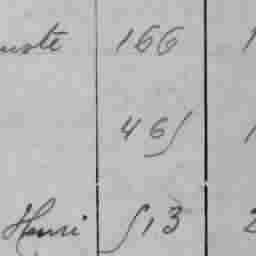 uste 166 1
465 1
Henri 513 2